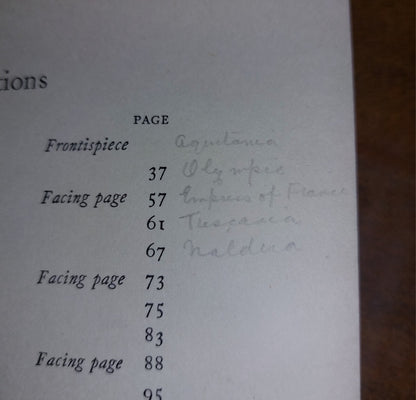 tions
PAGE
Frontispiece Aquitania
37 Olympic
Facing page 57 Empress of France
61 Tuscania
67
Facing page 73
75
83
Facing page 88
95